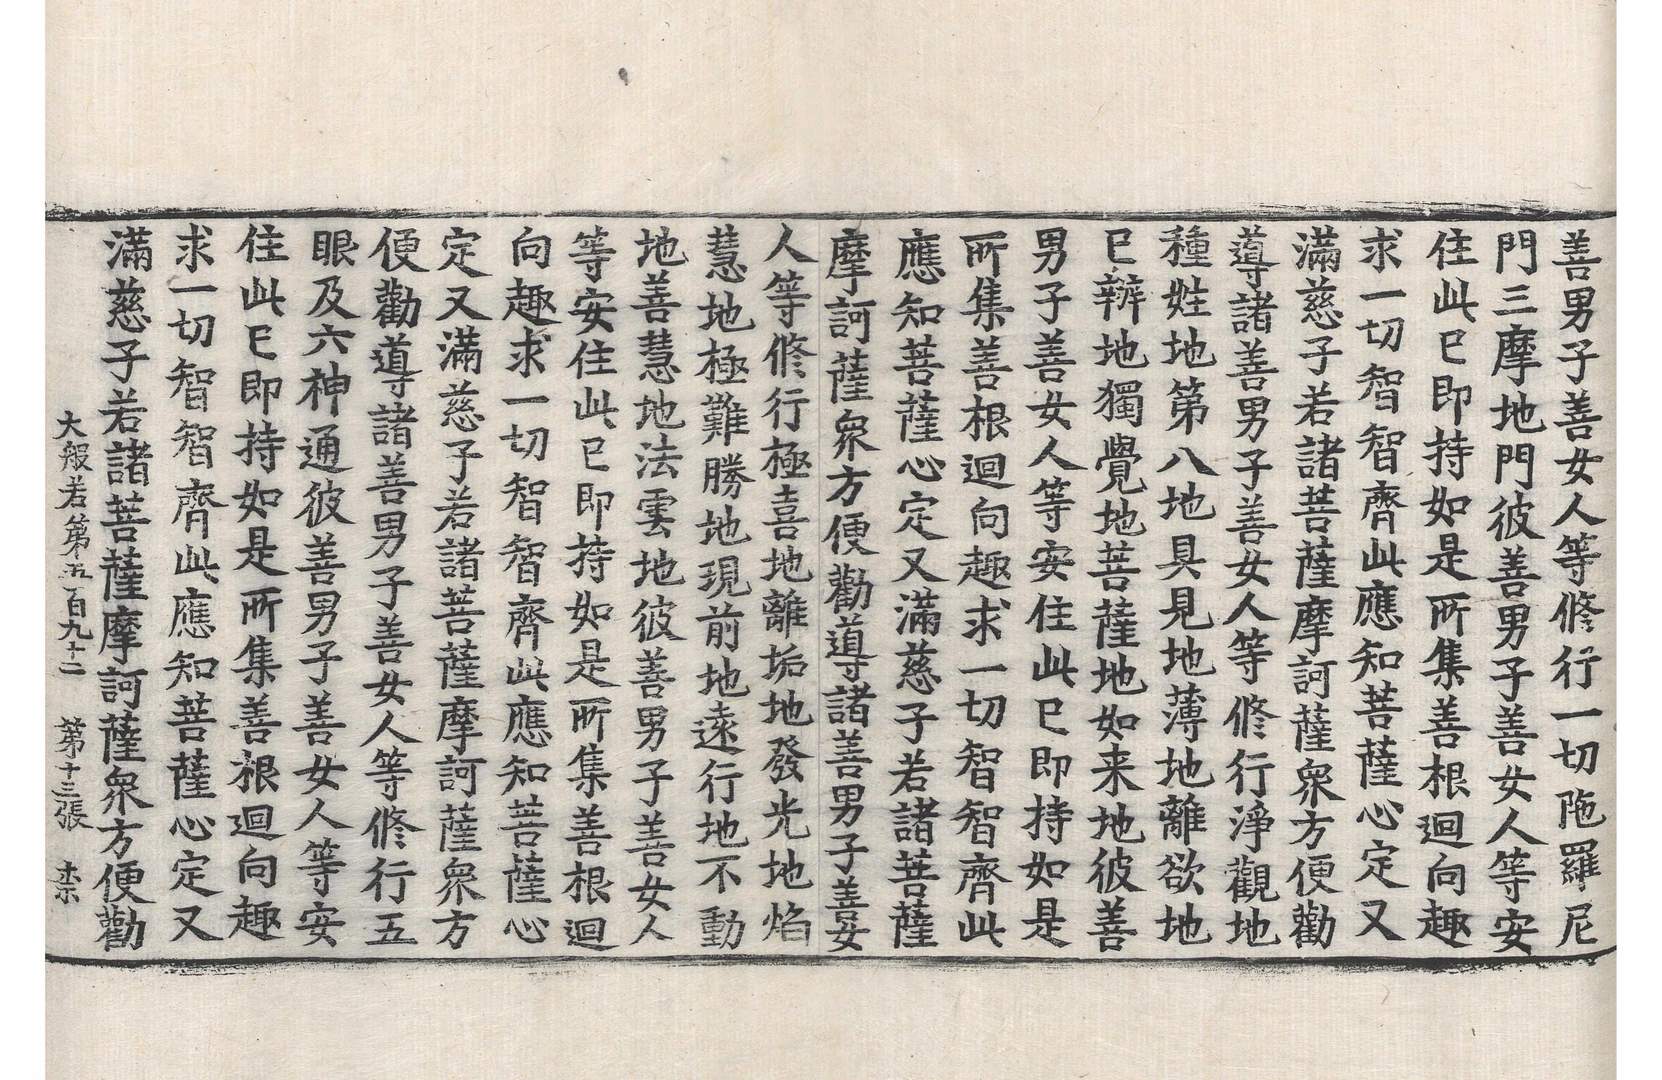 善男子善女人等修行一切陁羅尼
門三摩地門彼善男子善女人等安
住此已即持如是所集善根迴向趣
求一切智智齊此應知菩薩心定又
滿慈子若諸菩薩摩訶薩衆方便勸
導諸善男子善女人等修行淨觀地
種姓地第八地具見地薄地離欲地
已辦地獨覺地菩薩地如来地彼善
男子善女人等安住此已即持如是
所集善根迴向趣求一切智智齊此
應知菩薩心定又滿慈子若諸菩薩
摩訶薩衆方便勸導諸善男子善女
人等修行極喜地離垢地發光地焰
慧地極難勝地現前地遠行地不動
地善慧地法雲地彼善男子善女人
等安住此已即持如是所集善根迴
向趣求一切智智齊此應知菩薩心
定又滿慈子若諸菩薩摩訶薩衆方
便勸導諸善男子善女人等修行五
眼及六神通彼善男子善女人等安
住此已即持如是所集善根迴向趣
求一切智智齊此應知菩薩心定又
滿慈子若諸菩薩摩訶薩衆方便勸
大般若第五百九十二 第十三張 柰